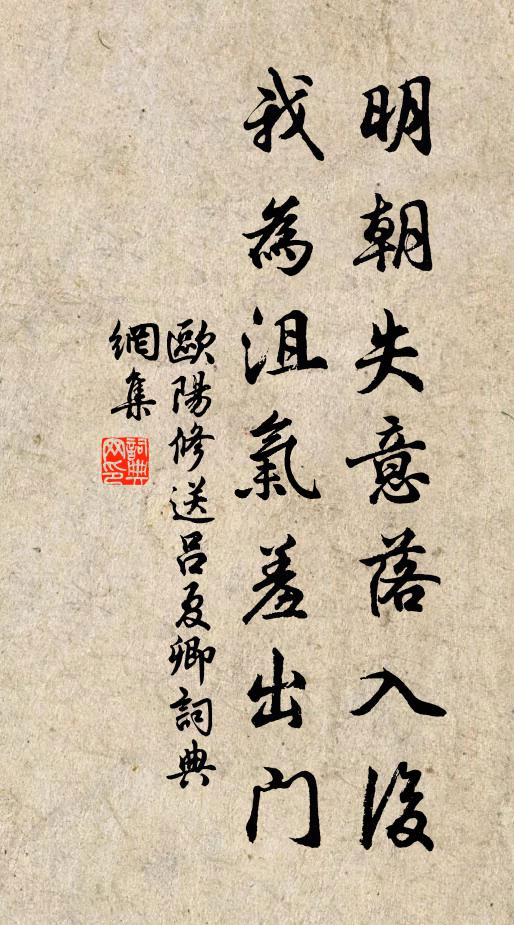 明朝失意落人後
我為沮氣羞出門
歐陽修送呂夏卿詞典
網集
詞典
网印